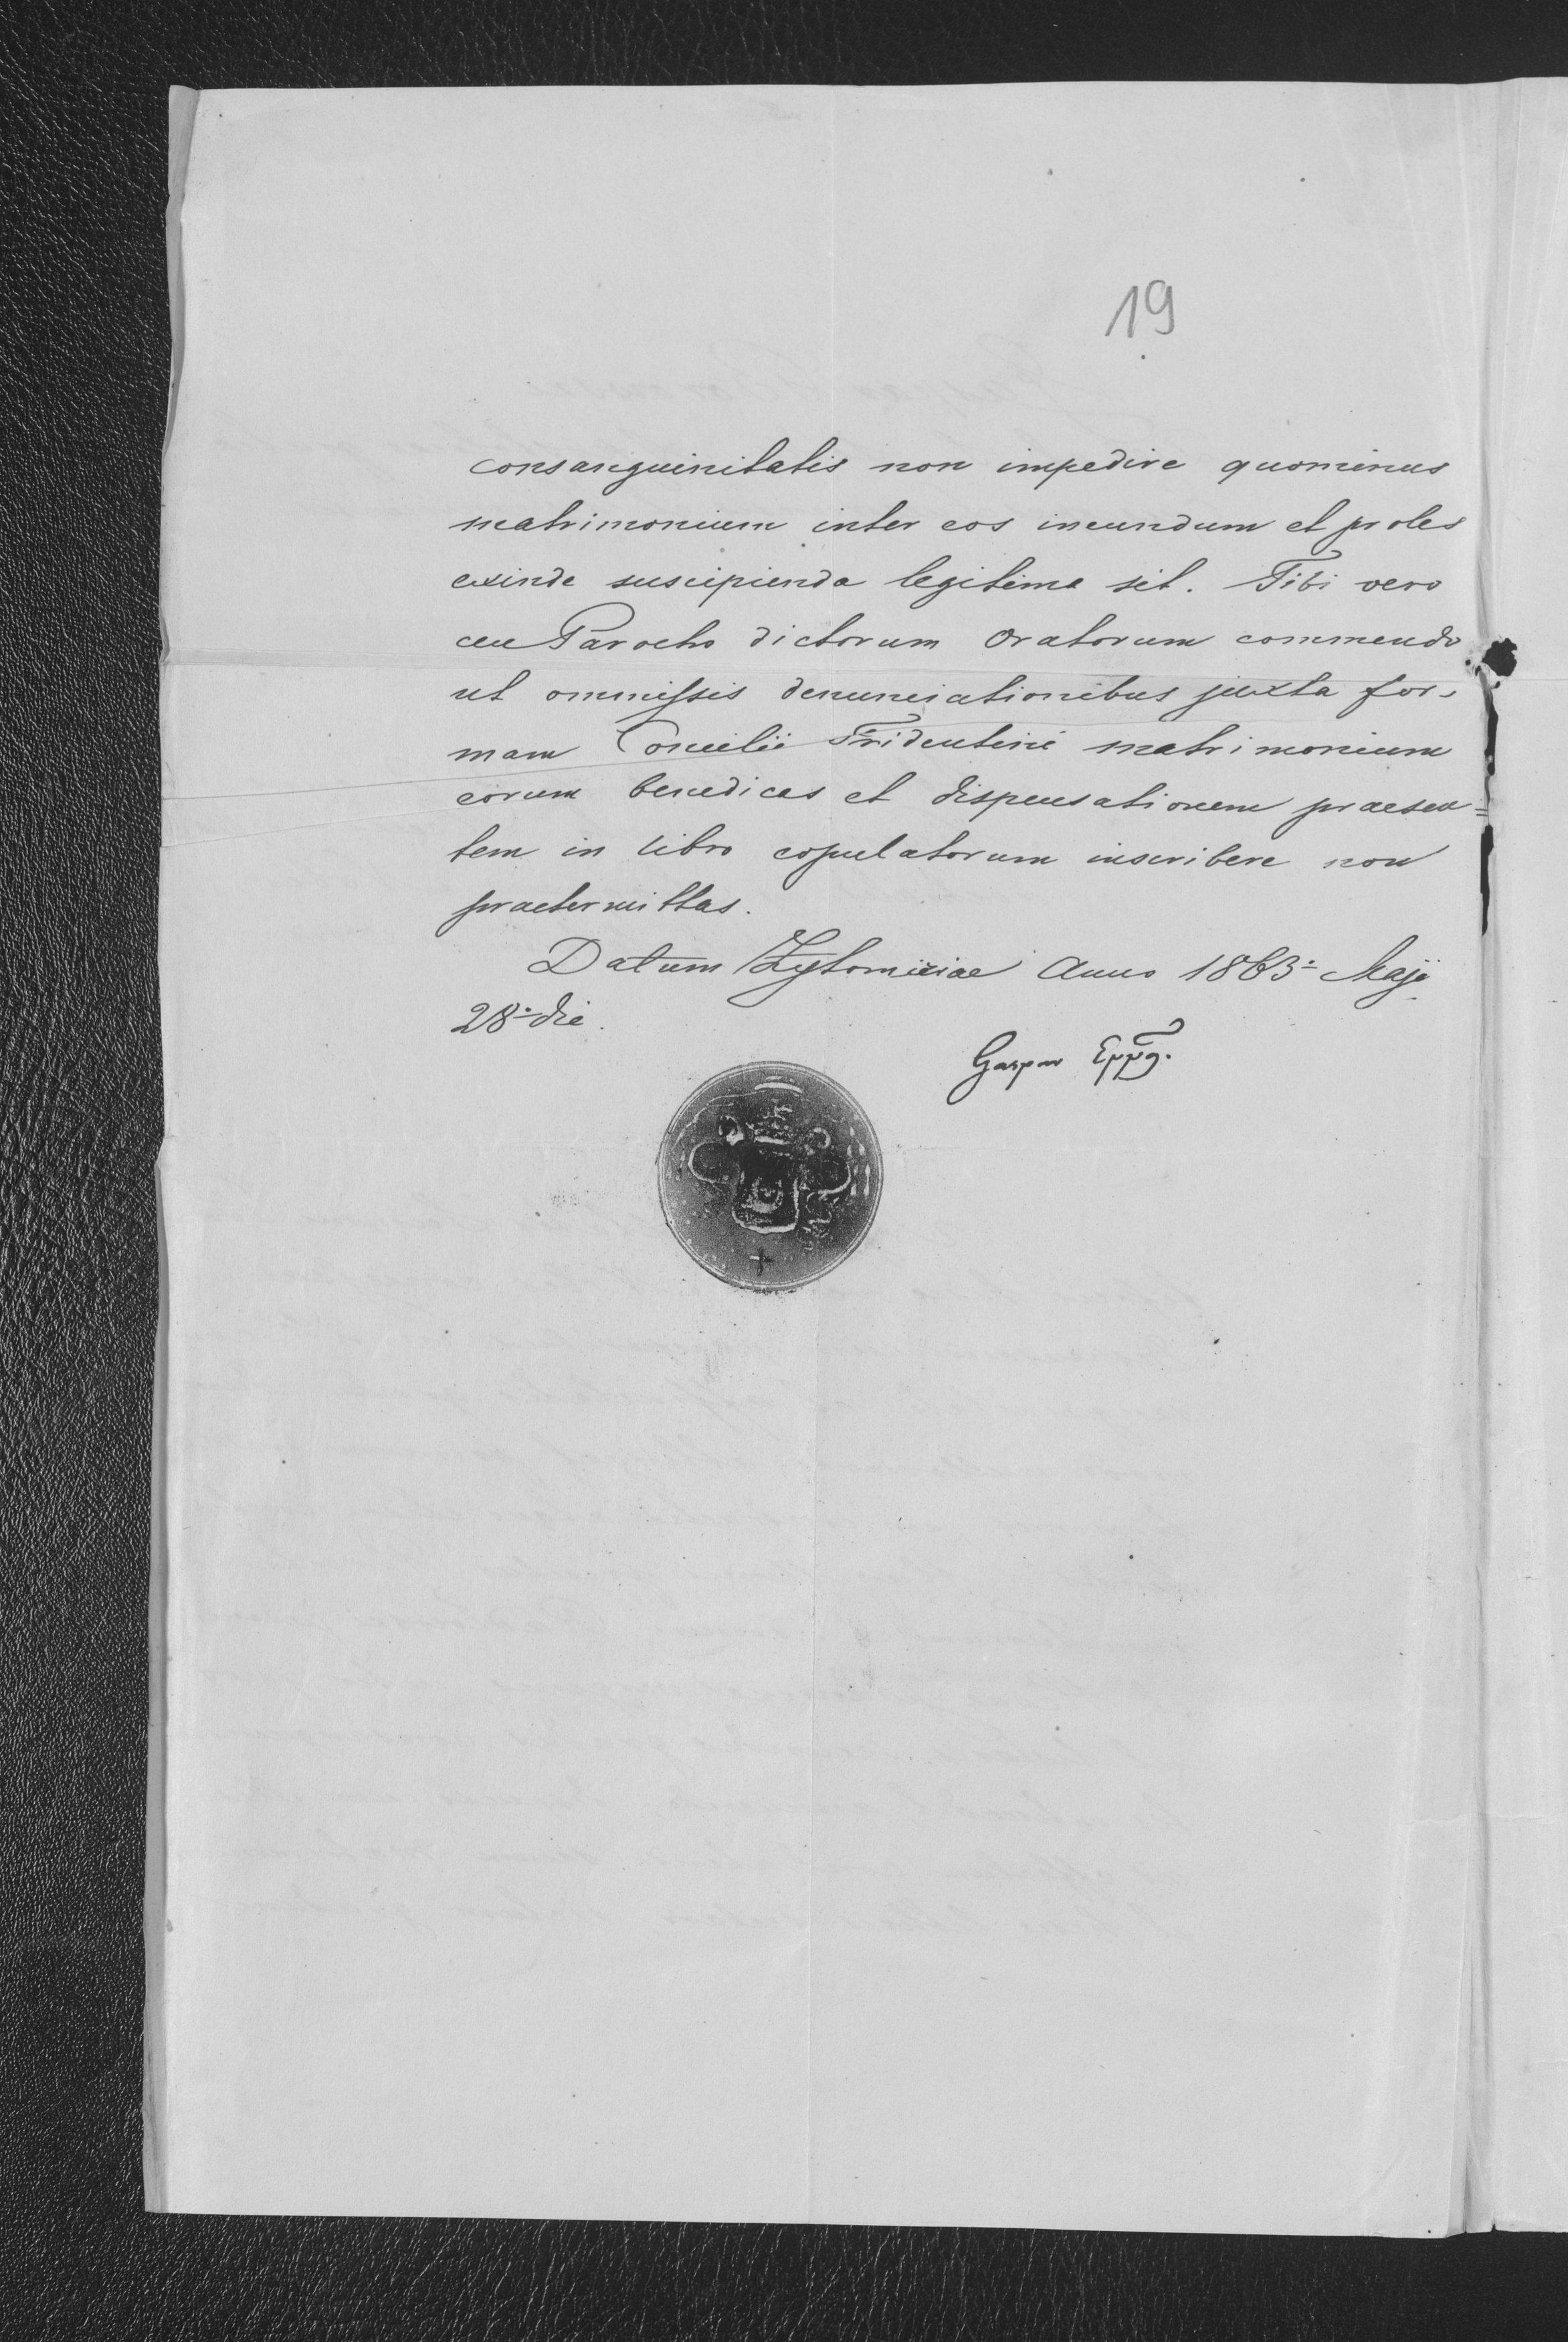 19
consanguinitatis non impedire quominus
matrimonium inter eos ineundum et proles
exinde suscipienda legitima sit. Tibi vero
ceu Parocho dictorum Oratorum commendo
ut ommissis denunciationibus juxta for-
mam Concilii Tridentini matrimonium
eorum benedicas et dispensationem praesen=
tem in libro copulatorum inscribere non
praetermittas.
Datum Zytomiriae Anno 1863 Maji
28 die.
Gaspar Eppus.